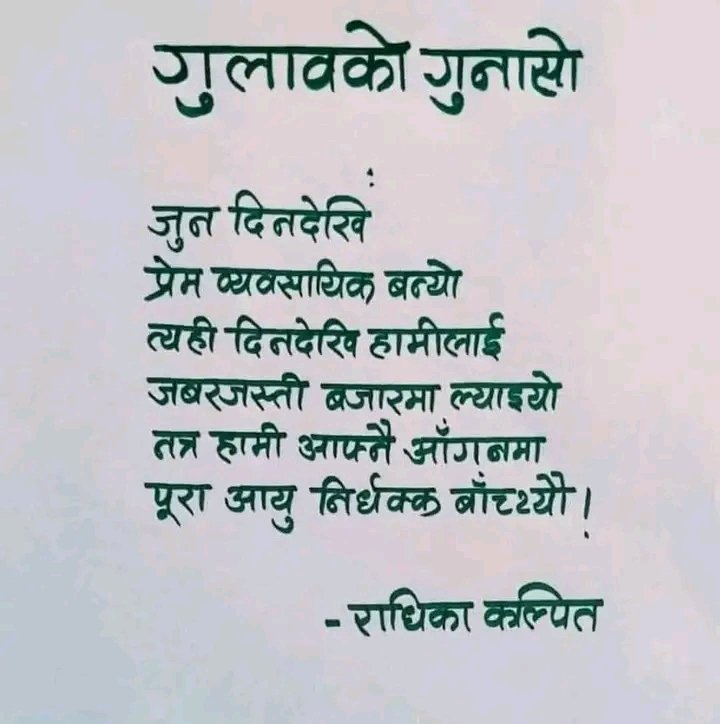 गुलावको गुनासो
जुन दिनदेखि
प्रेम व्यवसायिक बन्यो
त्यही दिनदेखि हामीलाई
जबरजस्ती बजारमा ल्याइयो
तत्र हामी आफ्नै आँगनमा
पूरा आयु निर्धक्क बाँच्थ्यौ !
- राधिका कल्पित